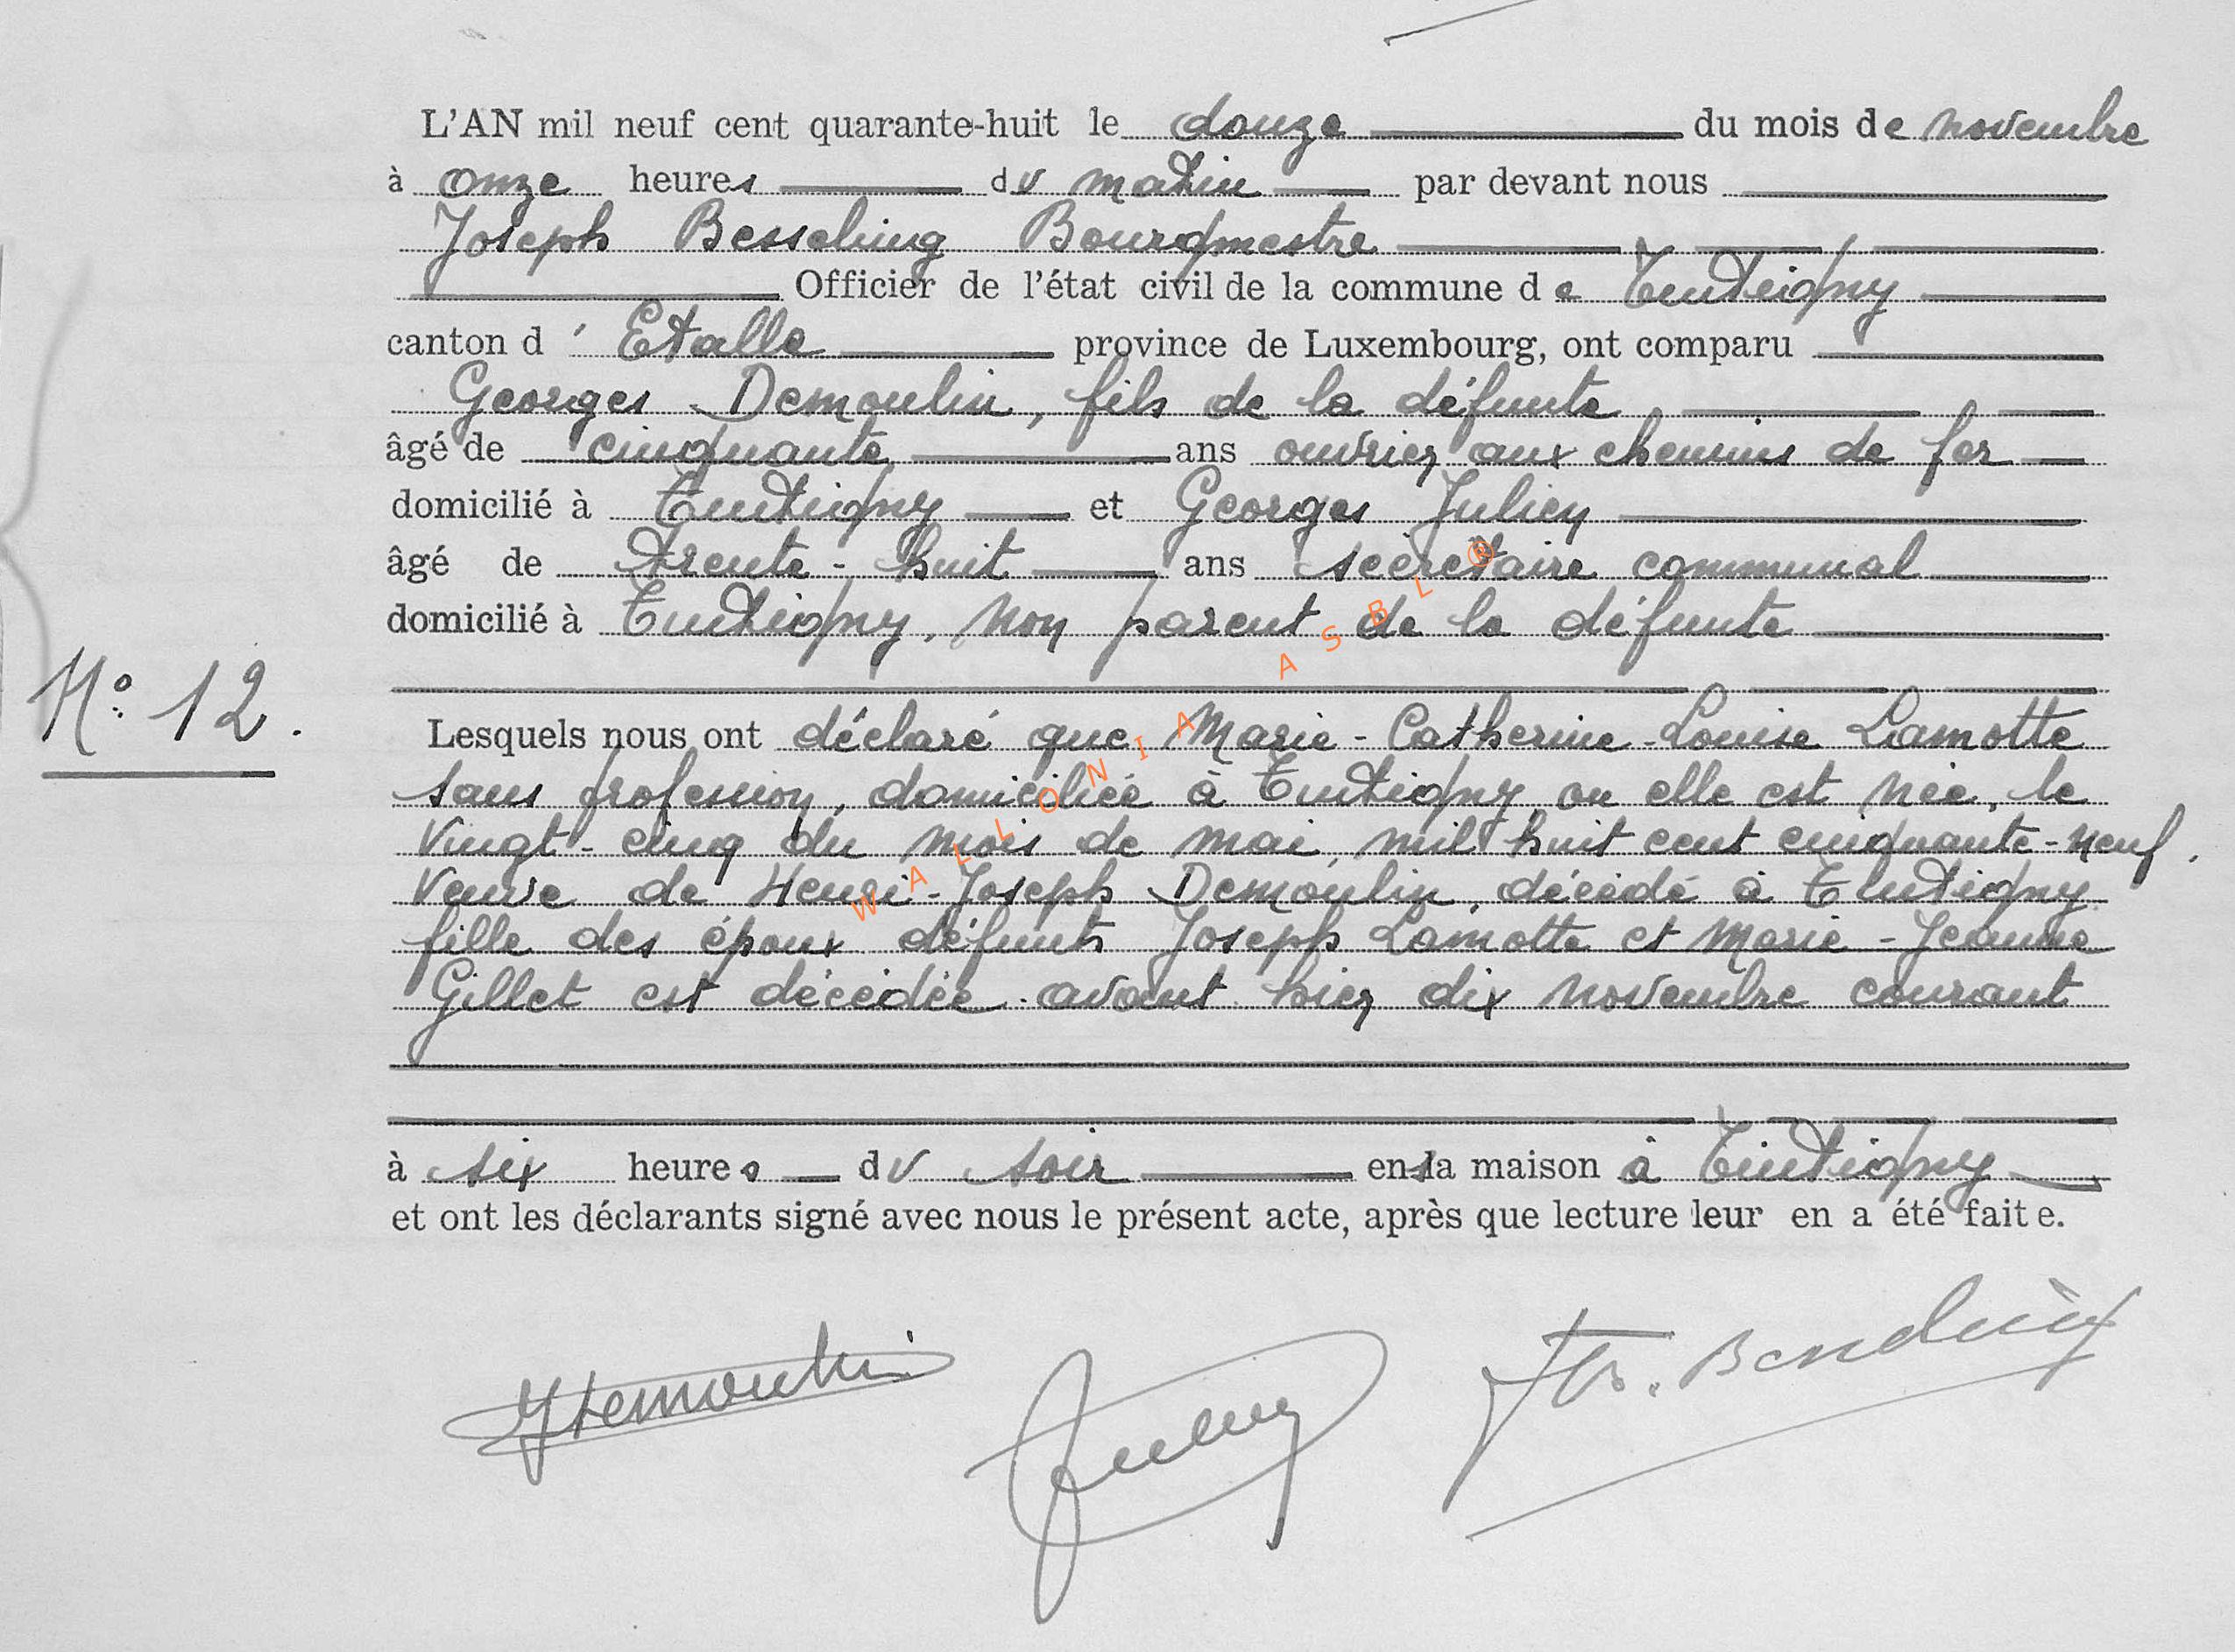 L'AN mil neuf cent quarante-huit le douze du mois de novembre
à onze heures du matin par devant nous
Joseph Besseling Bourgmestre
Officier de l'état civil de la commune de Tintigny
canton d'Etalle province de Luxembourg, ont comparu
Georges Demoulin, fils de la défunte
âgé de cinquante ans ouvrier aux chemins de fer
domicilié à Tintigny et Georges Julien
âgé de trente-huit ans secrétaire communal
domicilié à Tintigny, non parent de la défunte
N° 12.
Lesquels nous ont déclaré que Marie-Catherine-Louise Lamotte
sans profession, domiciliée à Tintigny ou elle est née, le
vingt-cinq du mois de mai, mil huit cent cinquante-neuf.
Veuve de Henri-Joseph Demoulin, décédé à Tintigny
fille des époux défunts Joseph Lamotte et Marie-Jeanne
Gillet est décédée avant hier dix novembre courant
à six heures du soir en sa maison à Tintigny
et ont les déclarants signé avec nous le présent acte, après que lecture leur en a été faite.
WALLONIA ASBL ®